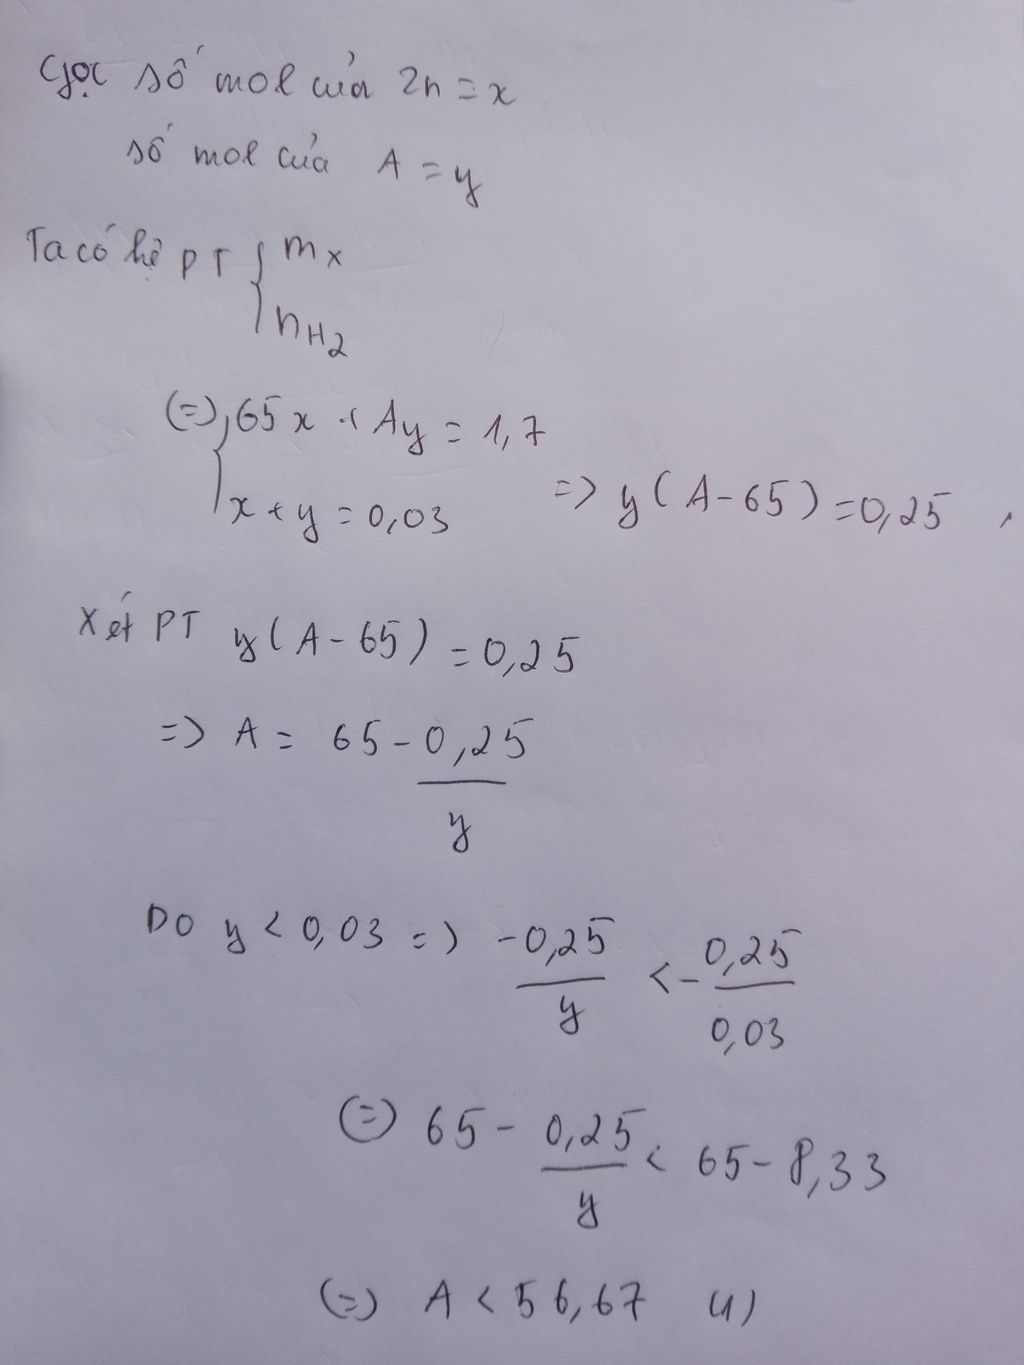 Gọi số mol của Zn = x
số mol của A = y
Ta có hệ PT { mx
nH2
(=) { 65x + Ay = 1,7
x + y = 0,03 => y(A-65) = 0,25
Xét PT y(A-65) = 0,25
=> A = 65 - 0,25/y
Do y < 0,03 => -0,25/y < - 0,25/0,03
(=) 65 - 0,25/y < 65 - 8,33
(=) A < 56,67 (1)